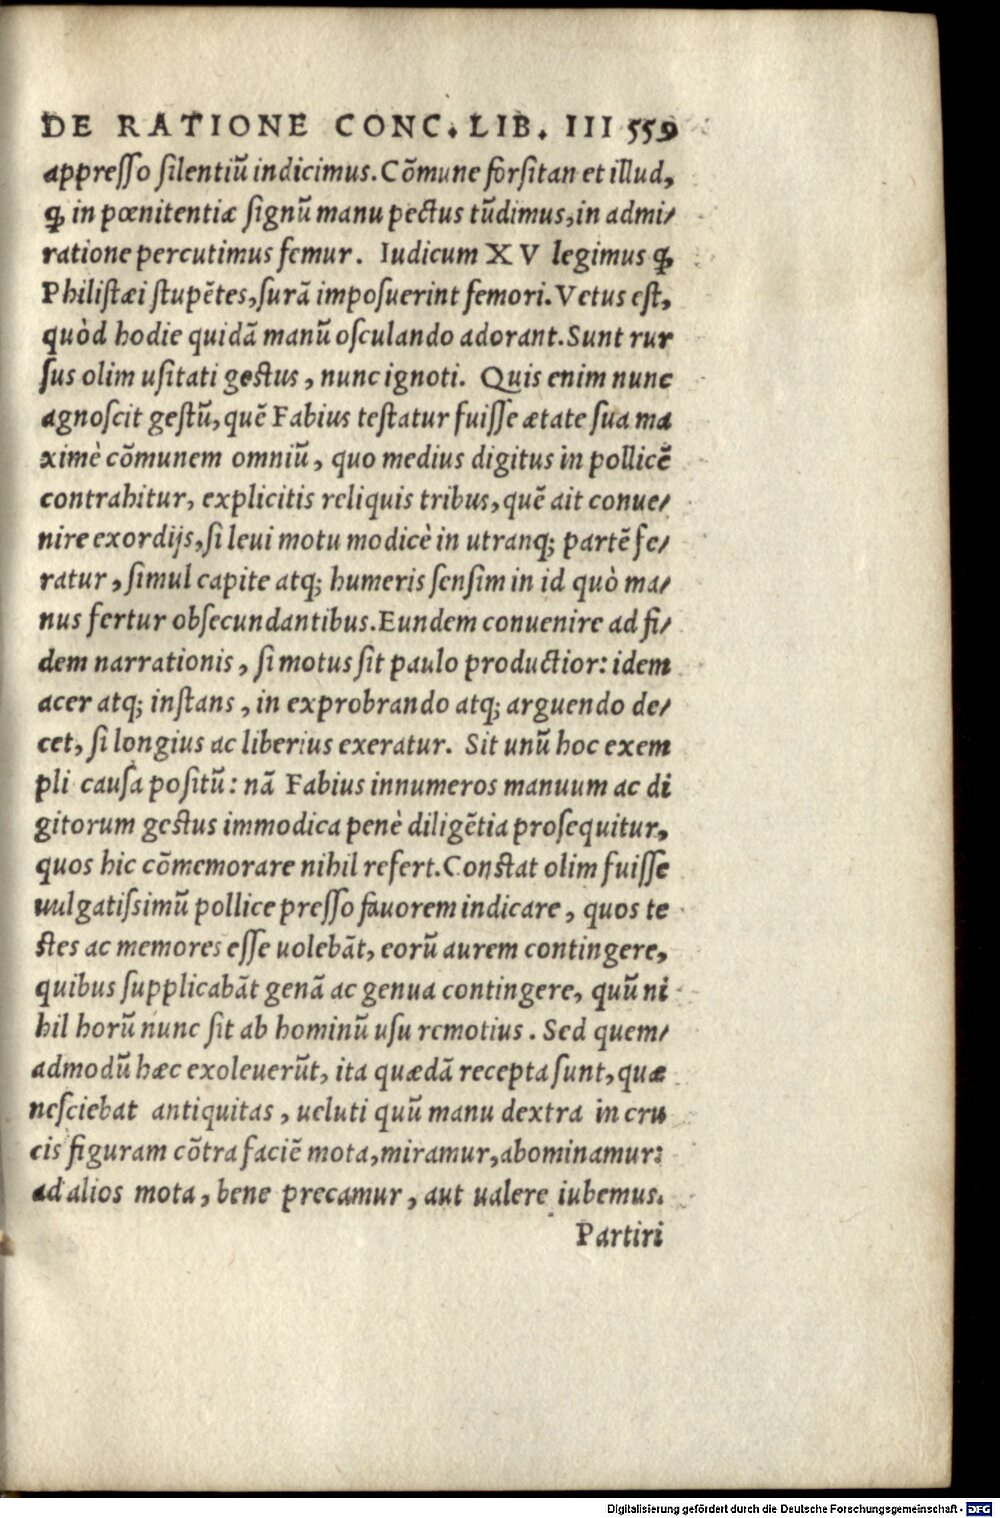 DE RATIONE CONC. LIB. III 559
appresso silentiũ indicimus. Cõmune forsitan et illud,
ꝙ in pœnitentiæ signũ manu pectus tũdimus, in admi/
ratione percutimus femur. Iudicum XV legimus ꝙ
Philistæi stupẽtes, surã imposuerint femori. Vetus est,
quòd hodie quidã manũ osculando adorant. Sunt rur
sus olim usitati gestus, nunc ignoti. Quis enim nunc
agnoscit gestũ, quẽ Fabius testatur fuisse ætate sua ma
ximè cõmunem omniũ, quo medius digitus in pollicẽ
contrahitur, explicitis reliquis tribus, quẽ ait conue/
nire exordijs, si leui motu modicè in utranq; partẽ fe/
ratur, simul capite atq; humeris sensim in id quò ma/
nus fertur obsecundantibus. Eundem conuenire ad fi/
dem narrationis, si motus sit paulo productior: idem
acer atq; instans, in exprobrando atq; arguendo de/
cet, si longius ac liberius exeratur. Sit unũ hoc exem
pli causa positũ: nã Fabius innumeros manuum ac di
gitorum gestus immodica penè diligẽtia prosequitur,
quos hic cõmemorare nihil refert. Constat olim fuisse
uulgatissimũ pollice presso fauorem indicare, quos te
stes ac memores esse uolebãt, eorũ aurem contingere,
quibus supplicabãt genã ac genua contingere, quũ ni
hil horũ nunc sit ab hominũ usu remotius. Sed quem/
admodũ hæc exoleuerũt, ita quædã recepta sunt, quæ
nesciebat antiquitas, ueluti quũ manu dextra in cru
cis figuram cõtra faciẽ mota, miramur, abominamur:
ad alios mota, bene precamur, aut ualere iubemus.
Partiri
Digitalisierung gefördert durch die Deutsche Forschungsgemeinschaft - DFG